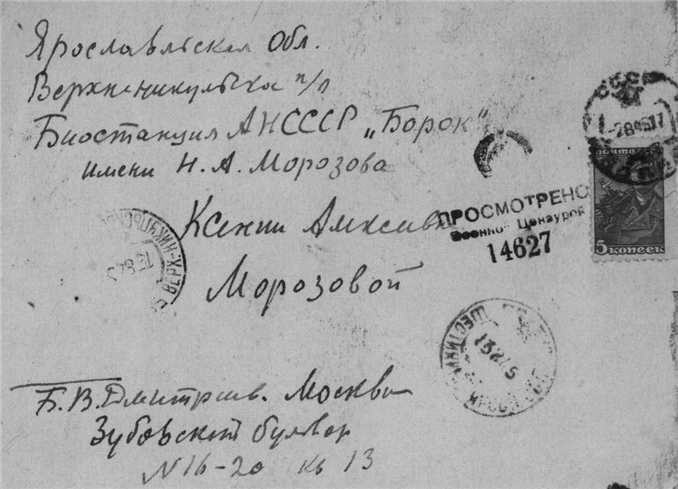 Ярославльская Обл.
Верхненикульская п/о
Биостанция АНСССР „Борок"
имени Н. А. Морозова
Ксении Алексеевне
Морозовой
ПРОСМОТРЕНО
Военной Цензурой
14627
5 копеек
Б. В. Дмитриев. Москва
Зубовский бульвар
N 16-20 кв 13